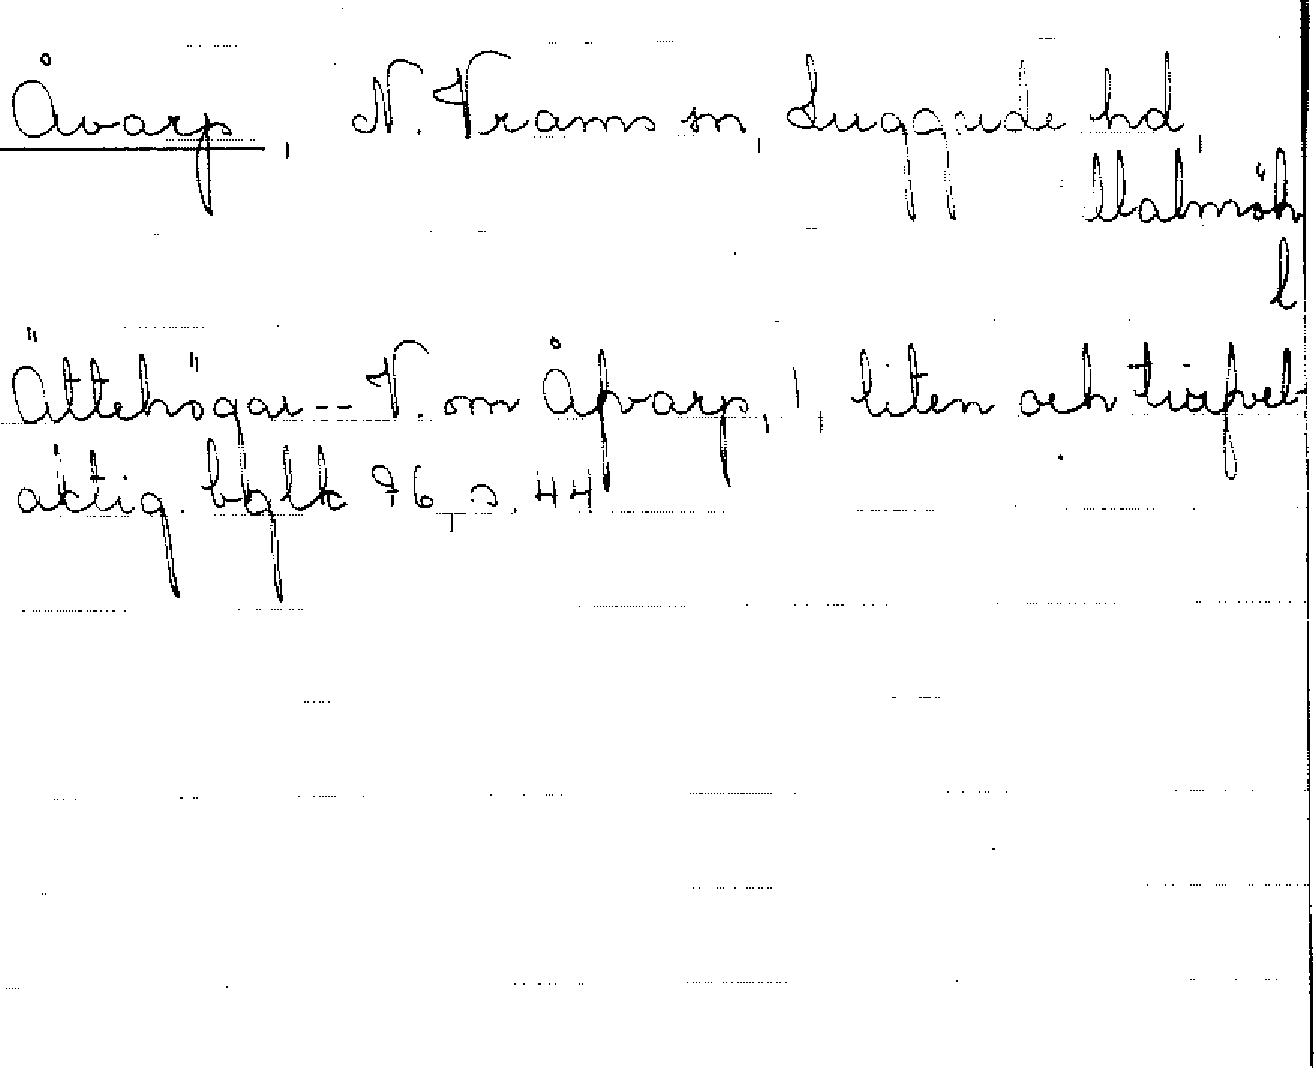 Åvarp, N. Vrams sn, Luggude hd,
Malmöh
l
Ättehögar -- V. om Åfvarp, 1, liten och tufvel-
aktig. bglk 96, s. 44